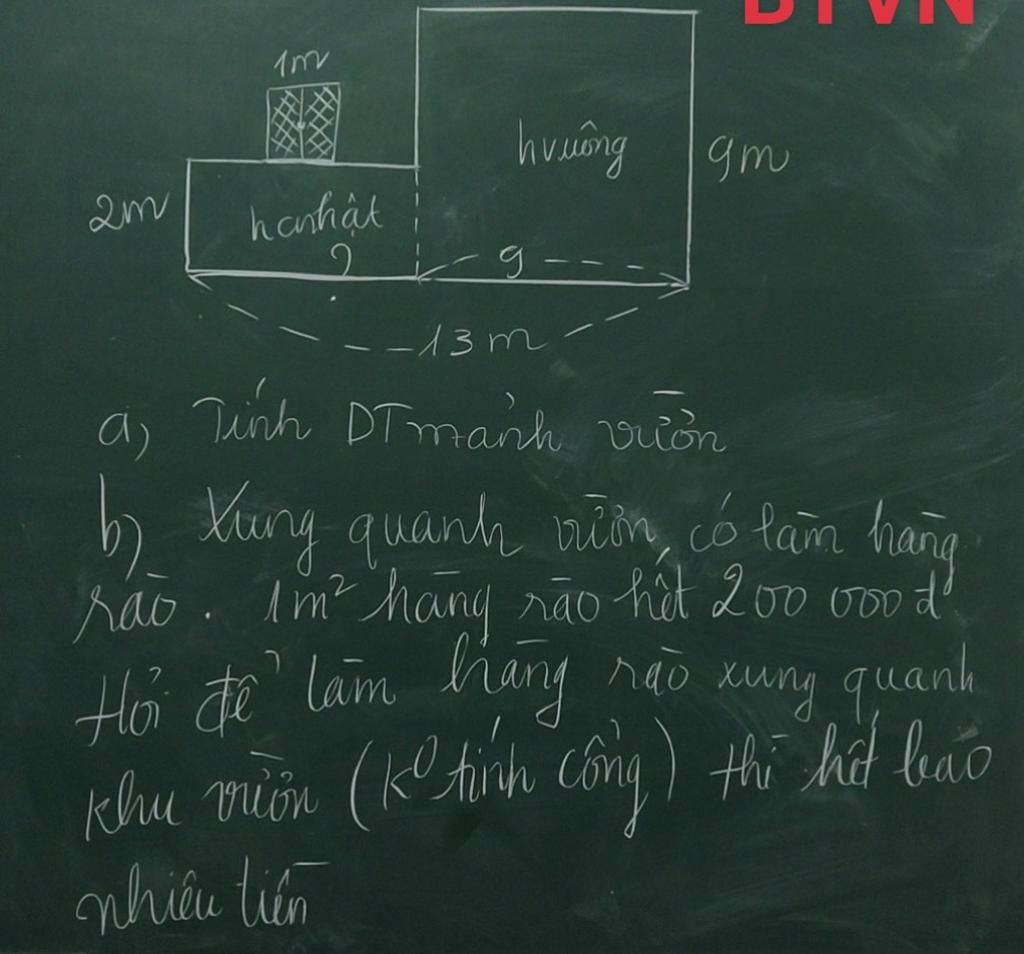 BTVN
1m
hvuông
9m
2m
hcnhật
?
9
13 m
a) Tính DT mảnh vườn
b) Xung quanh vườn, có làm hàng
rào. 1m² hàng rào hết 200 000 đ
Hỏi để làm hàng rào xung quanh
khu vườn (k⁰ tính cổng) thì hết bao
nhiêu tiền